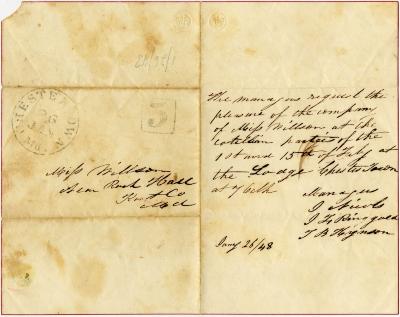 28/35/1
CHESTERTOWN
26
JAN
Md.
5
Miss Willson
Near Rock Hall
Kent Co
Md
The managers request the
pleasure of the company
of Miss Willson at the
cotillion parties of the
1st and 15th of Feby at
the Lodge Chester Town
at 7 Oclk
Managers
J Nicols
J F Ringgold
T B Hynson
Jany 26/48